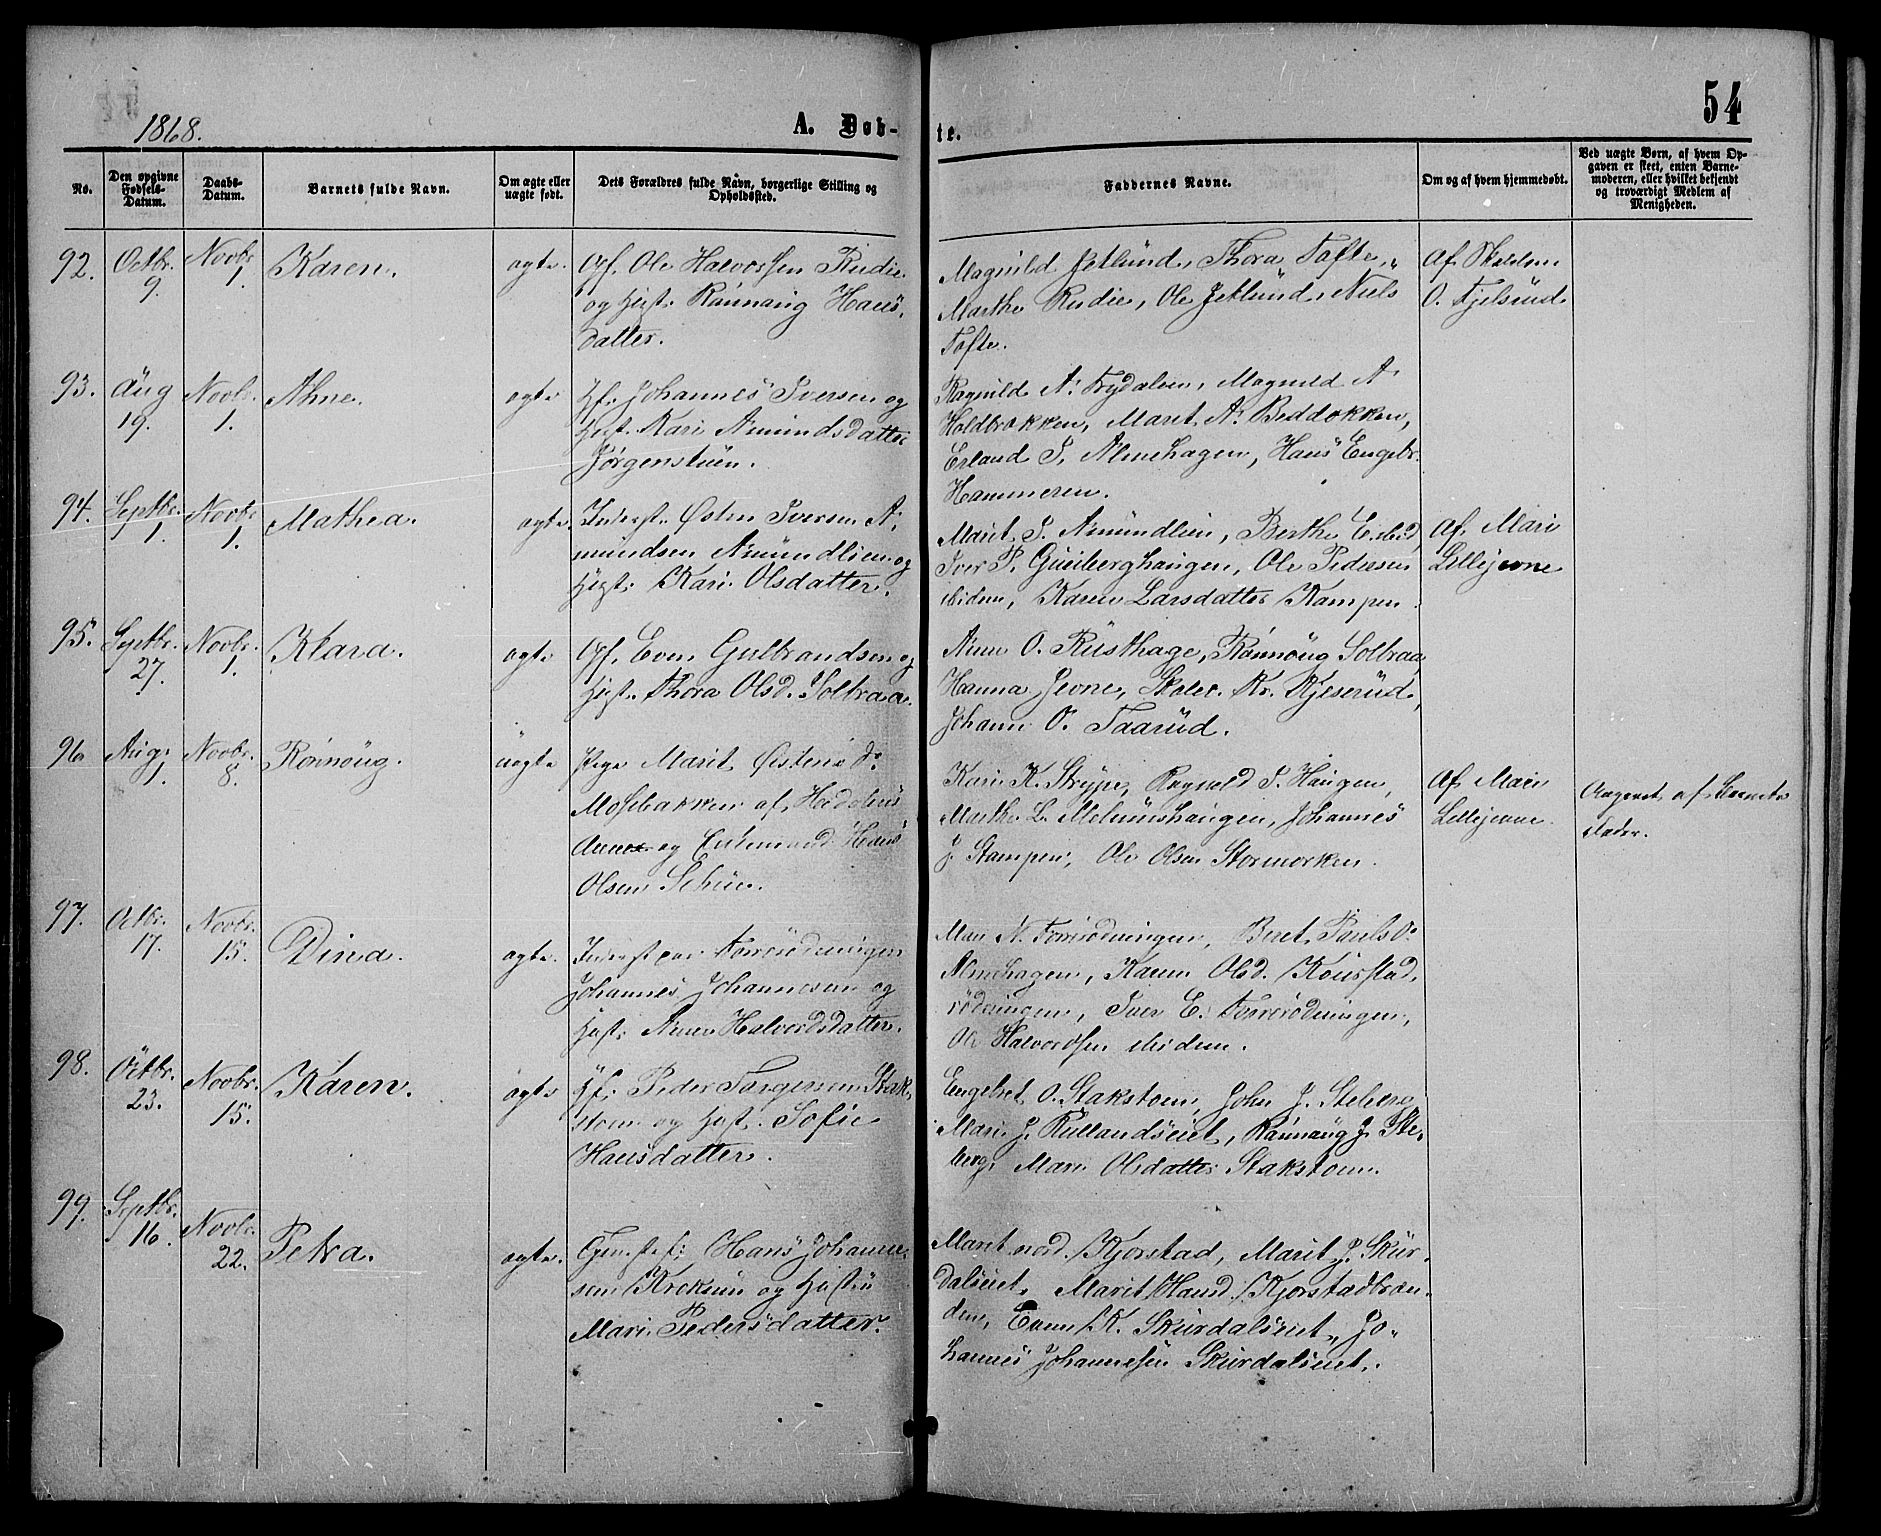 54
1868.
A. Døb-
te.
No.
Den opgivne Fødsels-Datum.
Daabs-Datum.
Barnets fulde Navn.
Om ægte eller uægte født.
Dets Forældres fulde Navn, borgerlige Stilling og Opholdssted.
Faddernes Navne.
Om og af hvem hjemmedøbt.
Ved uægte Børn, af hvem Op-
gaven er skeet, enten Barne-
moderen, eller hvilket bekjendt
og troværdigt Medlem af
Menigheden.
92. Octbr. 9. Novbr. 1. Karen. ægte.
Gf. Ole Halvorssen Rudie
og Hust. Rønnaug Hans,
datter.
Magnild Jetlund, Thora Tofte,
Marthe Rudie, Ole Jetlund, Niels
Tofte.
Af Skolelær.
O. Fjelsrud.
93. Aug 19. Novbr. 1. Ahne. ægte
Hf. Johannes Iversen og
Hust. Kari Amundsdatter
Jørgenstuen.
Ragnild A. Frydalen, Magnild A.
Holdbrokken, Marit A. Beddokken,
Erland P. Almehagen, Hans Engebr.
Hammeren.
94. Septbr. 1. Novbr. 1. Mathea. ægte.
Inderst. Østen Iversen A,
mundsen Amundlien og
Hust. Kari Olsdatter.
Marit I. Amundlien, Berthe E. ibid,
Iver P. Guibergshaugen, Ole Pedersen
ibidem, Karen Larsdatter Kampen.
Af Mari
Lillejevne
95. Septbr. 27. Novbr. 1. Klara. ægte
Gf. Even Gulbrandsen og
Hust. Thora Olsd. Solbraa.
Anne O. Rusthage, Rønnøug Solbraa
Hanna Jevne, Skolel. Kr. Kjeserud,
Johann O. Taarud.
96 Aug. 1. Novbr. 8. Rønnøug. uægte
Pige Marit Østens d.
Mosebakken af
og Enkemand Hans
Olsen
Kari K. Strype, Ragnild I. Haugen,
Marthe L. Melumshaugen, Johannes
J. Stampen, Ole Olsen Stormorken.
Af Mari
Lillejevne.
Angivet af Barnets
Fader.
97. Octbr. 17. Novbr. 15. Dina. ægte.
Inderst paa Forrødningen
Johannes Johannesen og
Hust. Anne Halvordsdatter.
Mari N. Forrødningen, Beret Paulsd.
Almehagen, Karen Olsd. Kourstad,
rødningen, Iver E. Forrødningen,
Ole Halvordsen ibidem.
98. Octbr. 23. Novbr. 15. Karen. ægte
Hf. Peder Torgersen Stak,
stoen og Hust. Sofie
Hansdatter.
Engebret O. Stakstoen, John J. Steberg
Mari J. Rullandseiet, Rønnaug J. Ste,
berg, Mari Olsdatter Stakstoen.
99. Septbr. 16. Novbr. 22. Petra. ægte.
Hans Johanne,
sen Kroksun og Hustru
Mari Pedersdatter.
Marit nord. Kjorstad, Marit J. Skur,
dalseiet, Marit Hansd. Kjorstadbræn,
den, Even K. Skurdalseiet, Jo,
hannes Johannesen Skurdalseiet.